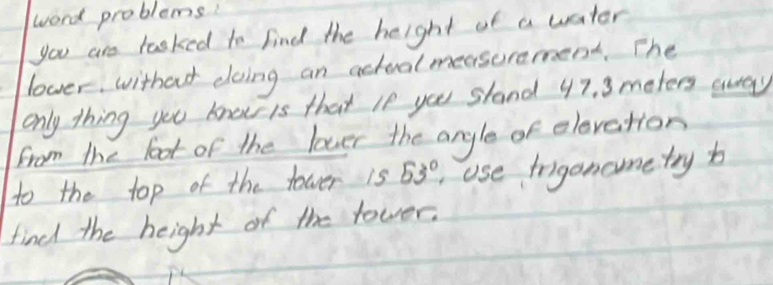 word problems:
you are tasked to find the height of a water
tower. without doing an actual measurement. The
only thing you know is that if you stand 47.3 meters away
from the foot of the tower the angle of elevation
to the top of the tower is 53°. use trigonometry to
find the height of the tower.